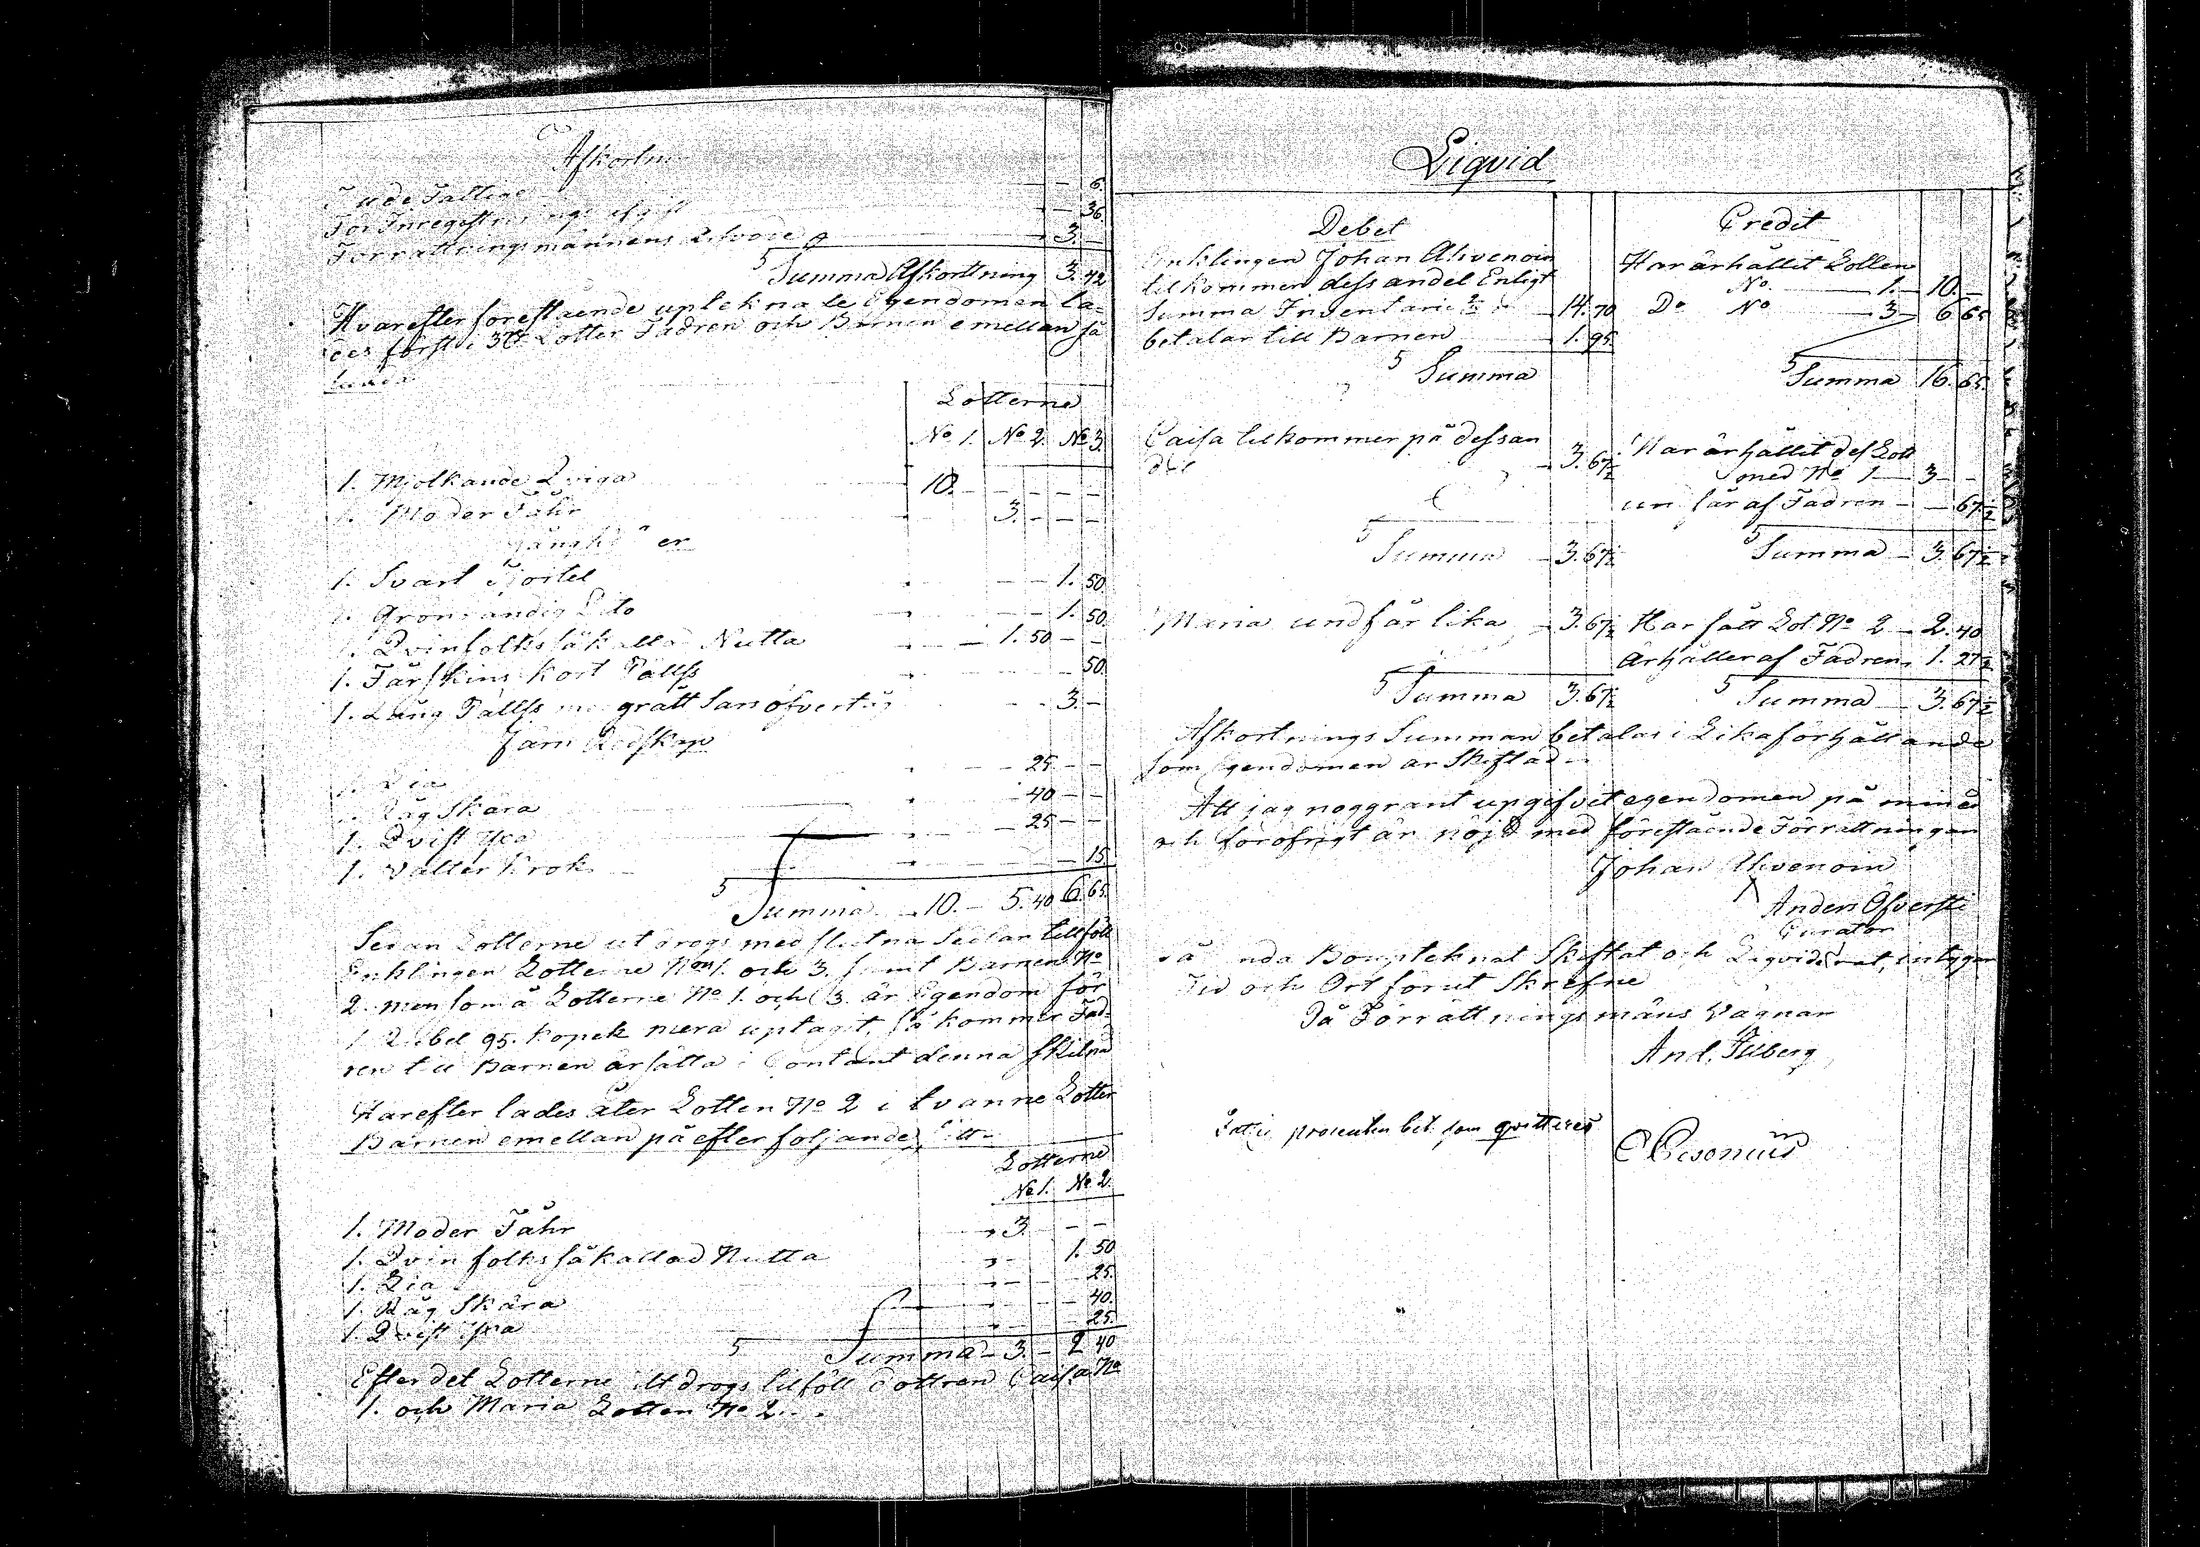 Afkortni
För Inregistrerings afgift — 36.
Förrättningsmännens Arfvode 3. —
Summa Afkorttning 3. 42
Hvarefter förestående upteknade Egendomen la-
des först i 3ne Lotter Fadren och Barnen emellan så
Lotterne
No 1. No 2. No 3.
1. Mjolkande Qviga 10. — — — —
1. Moder Fåhr 3. — — —
1. Svart Kjortel — 1. 50.
1. Gronrandig Dito — 1. 50.
1. Qvinfolks såkallad Nutta — 1. 50 — —
1. Fårskins kort Pällss 50.
1. Lång Pällss grått Lars öfvertyg 3. —
Jarn Redskap
1. Lia — 25 — —
1. Råg Skära — 40 — —
1. Qvist Yxa — 25 — —
1. Vålter Krok — 15.
Summa 10. — 5. 40 6. 65.
Sedan Lotterne utdrogs med slutna Sedlar tillföll
Enklingen Lotterne No 1. och 3. samt Barnen No
2. men som å Lotterne No 1. och 3. är Egendom för
1 Rubel 95. kopek mera uptagit, så kommer Fad-
ren till Barnen ärsätta i Contant denna skilna
Harefter lades åter Lotten No 2 i tvanne Lotter
Barnen emellan på efter foljande sätt
Lotterne
No 1. No 2.
1. Moder Fåhr 3. — —
1. Qvinfolks såkallad Nutta 1. 50
1. Lia — 25.
1. Råg Skära — 40.
1. Qvist Yxa — 25.
Summa 3. — 2 40
Efter det Lotterne utdrogs tilföll Dottren Caisa No
1. och Maria Lotten No 2.
Liqvid
Debet Credit
Enklingen Johan Ahvenoin
tilkommer dess andel Enligt
Summa Inventarie 14. 70
betalar till Barnen 1. 95.
Summa
Har ärhållit Lotten
No 1. — 10. —
Do No 3 — 6. 65
Summa 16. 65.
Caisa tilkommer på dess an
del 3. 67½
Summa 3. 67½
Har ärhållit des Lott
med No 1 — 3 —
un får af Fadren — 67½
Summa 3. 67½
Maria undfår lika 3. 67½
Summa 3. 67½
Har fått Lot No 2 — 2. 40
Ärhåller af Fadren 1. 27½
Summa 3. 67½
Afkortnings Summan betalas i Lika förhållande
som Egendomen är Skiftad
Att jag noggrant upgifvit egendomen på min ed
och föröfrigt är nöjd med förestående Förrättningen
Johan Ahvenoin
Anders Öfversti
Curator
Boupteknat Skiftat och Liqviderat, intygar
Tid och Ort förut Skrefne
På Förrättningsmäns Vägnar
And. Åberg
procenten bet. som qvitteras